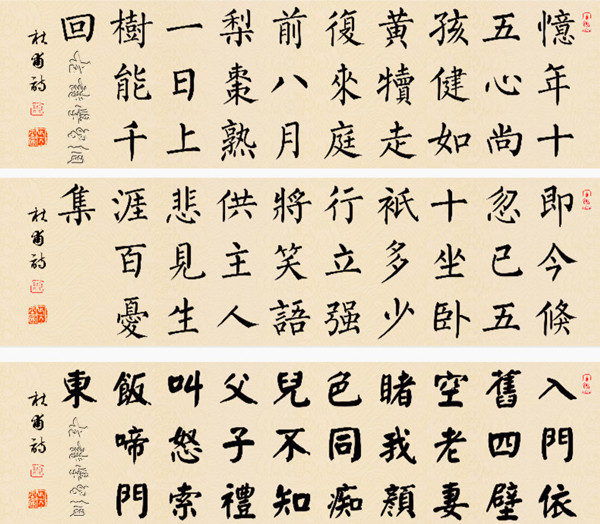 憶年十
五心尚
孩健如
黃犢走
復來庭
前八月
梨棗熟
一日上
樹能千
回
杜甫詩
即今倏
忽已五
十坐卧
衹多少
行立强
將笑語
供主人
悲見生
涯百憂
集
杜甫詩
入門依
舊四壁
空老妻
睹我顏
色同痴
兒不知
父子禮
叫怒索
飯啼門
東
杜甫詩